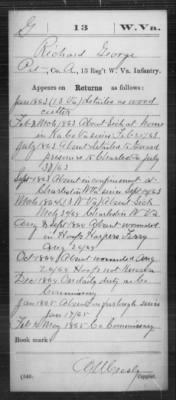 G 13 W. Va.
Richard George
Pvt, Co. A, 13 Reg't W. Va. Infantry.
Appears on Returns as follows:
Jany 1863 (13 Va) Detailed as wood
cutter
Feb & Mch 1863 Absent Sick at home
in Va Since Feb 21/63
July 1863 Absent detailed to Guard
prisoners to Charleston July
63
Sept 1863 Absent in confinement at
Charleston Since Sept 63
Mch 1864 (13 W Va) Absent Sick
Charleston W Va
Aug & Sept 1864 Absent wounded
in Hosp Harpers Ferry
Aug 24/64
Oct 1864 Absent wounded Aug
24/64 Hosp not known
Dec 1864 On daily duty as Co
Commissary
Jan 1865 Absent
Jan 65
Feb to May 1865 Co Commissary
Book mark:
(546)
Copyist.